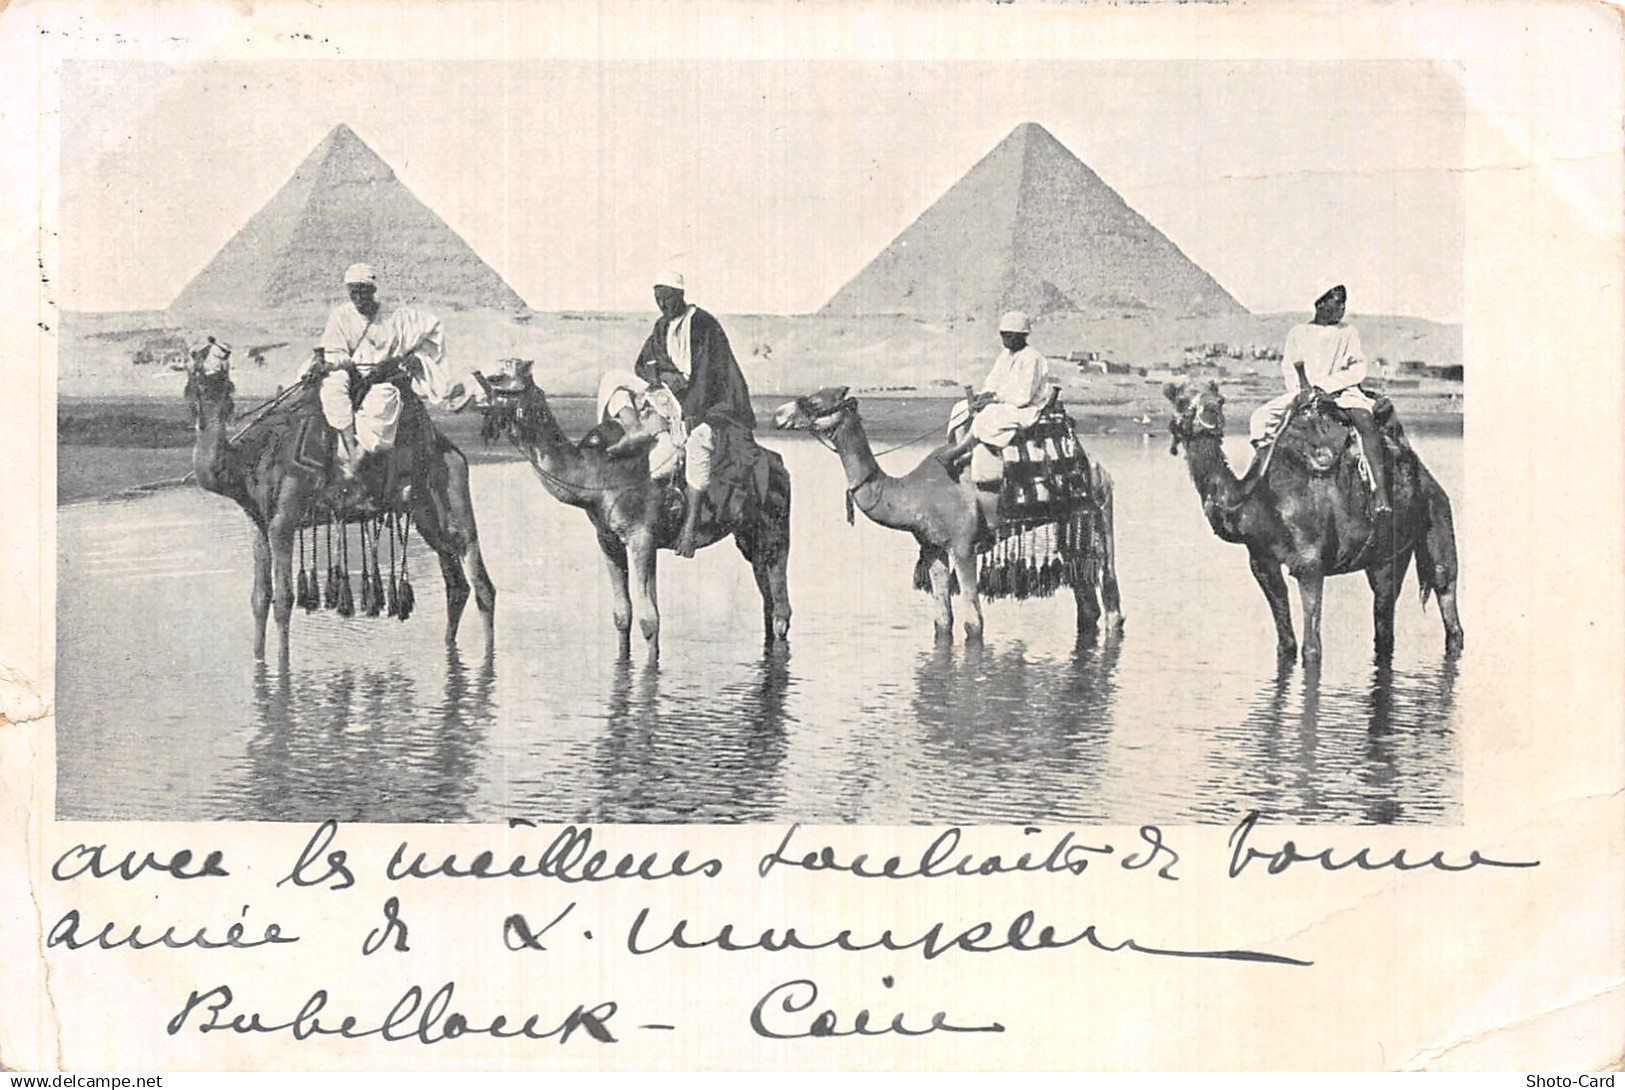 avec les meilleurs souhaits de bonne
année de
Babellouk - Caire
www.delcampe.net
Shoto-Card